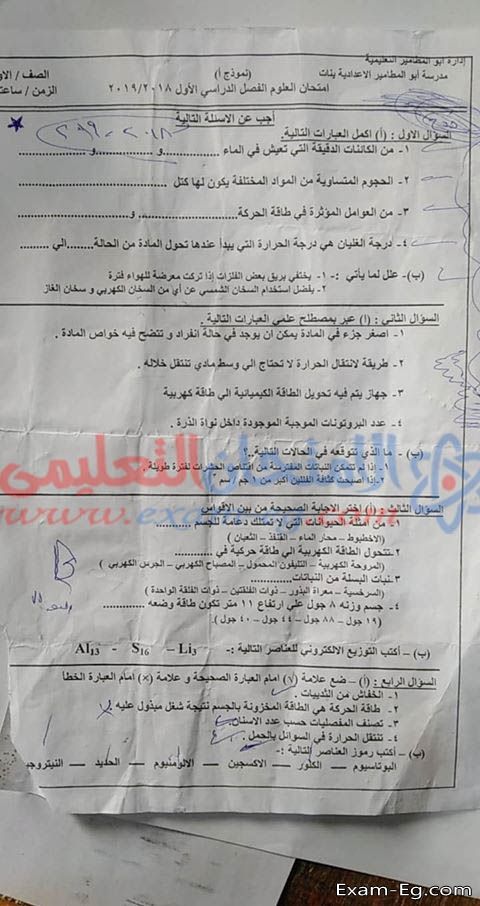 إدارة أبو المطامير التعليمية
مدرسة أبو المطامير الاعدادية بنات
(نموذج أ)
امتحان العلوم الفصل الدراسي الأول ٢٠١٩/٢٠١٨
الصف / الاو
الزمن / ساعت
أجب عن الاسئلة التالية
السؤال الاول : (أ) اكمل العبارات التالية.
١- من الكائنات الدقيقة التي تعيش في الماء ................و................و................
٢- الحجوم المتساوية من المواد المختلفة يكون لها كتل ................
٣- من العوامل المؤثرة في طاقة الحركة................و................
٤- درجة الغليان هي درجة الحرارة التي يبدأ عندها تحول المادة من الحالة.........الي .........
(ب)- علل لما يأتي :- ١- يختفي بريق بعض الفلزات إذا تركت معرضة للهواء فترة
٢- يفضل استخدام السخان الشمسي عن أي من السخان الكهربي و سخان الغاز
السؤال الثاني : (أ) عبر بمصطلح علمي العبارات التالية .
١- اصغر جزء في المادة يمكن ان يوجد في حالة انفراد و تتضح فيه خواص المادة .
٢- طريقة لانتقال الحرارة لا تحتاج الي وسط مادي تنتقل خلاله .
٣- جهاز يتم فيه تحويل الطاقة الكيميائية الي طاقة كهربية
٤- عدد البروتونات الموجبة الموجودة داخل نواة الذرة .
(ب)- ما الذي تتوقعه في الحالات التالية..؟
١-إذا لم تتمكن النباتات المفترسة من اقتناص الحشرات لفترة طويلة .
٢-إذا أصبحت كثافة الفلين أكبر من ١ جم / سم ٣
السؤال الثالث : (أ) اختر الاجابة الصحيحة من بين الاقواس
١- من أمثلة الحيوانات التي لا تمتلك دعامة للجسم ............
(الاخطبوط – محار الماء – القنفذ – الثعبان )
٢-تتحول الطاقة الكهربية الي طاقة حركية في ............
( المروحة الكهربية – التليفون المحمول – المصباح الكهربي – الجرس الكهربي )
٣-نبات البسلة من النباتات............
(السرخسية – معراة البذور – ذوات الفلقتين – ذوات الفلقة الواحدة )
٤- جسم وزنه ٨ جول علي ارتفاع ١١ متر تكون طاقة وضعه ............
(١٩ جول – ٨٨ جول – ٤٤ جول – ٤٠ جول )
(ب) – أكتب التوزيع الالكتروني للعناصر التالية :- Al13 - S16 – Li3
السؤال الرابع : (أ) – ضع علامة (√) امام العبارة الصحيحة و علامة (×) امام العبارة الخطأ
١- الخفاش من الثدييات .
٢- طاقة الحركة هي الطاقة المخزونة بالجسم نتيجة شغل مبذول عليه .
٣- تصنف المفصليات حسب عدد الاسنان
٤- تنتقل الحرارة في السوائل بالحمل .
(ب) – أكتب رموز العناصر التالية :-
البوتاسيوم – الكلور – الاكسجين – الالومنيوم – الحديد – النيتروجي
Exam-Eg.com